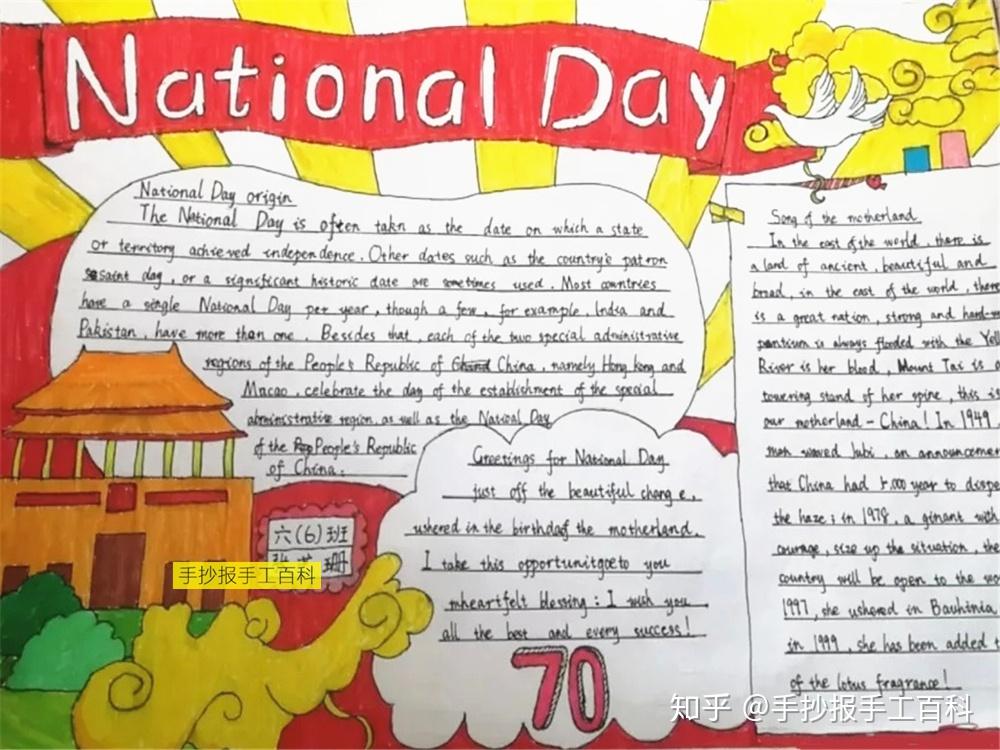 National Day
National Day origin
The National Day is often takn as the date on which a state
or territory achieved independence. Other dates such as the country's patron
saint day, or a significant historic date are sometimes used. Most countries
have a single National Day per year, though a few, for example, India and
Pakistan, have more than one. Besides that, each of the two special administrative
regions of the People's Republic of China, namely Hong Kong and
Macao, celebrate the day of the establishment of the special
administrative region, as well as the National Day
of the People's Republic
of China.
Greetings for National Day
just off the beautiful change,
ushered in the birthday the motherland.
I take this opportunitgoeto you
mheartfelt blessing: I wish you
all the best and every success!
70
六(6)班
手抄报手工百科
Song of the motherland
In the east of the world, there is
a land of ancient, beautiful and
broad, in the east of the world, there
is a great nation, strong and hard
is always flooded with the Yel
River is her blood, Mount Tai is a
towering stand of her spine, this is
our motherland - China! In 1949
man waved Jubi, an announcemen
that China had 5,000 year to dispe
the haze; in 1978, a ginant with
courage, size up the situation, the
country will be open to the wo
1997, she ushered in Bauhinia
in 1999, she has been added t
of the lotus fragrance!
知乎 @手抄报手工百科